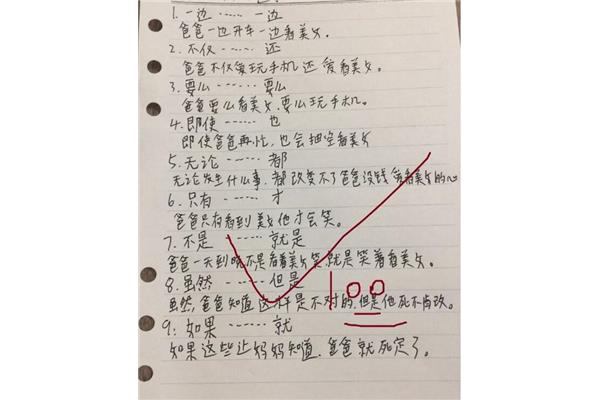 1. 一边 …… 一边
爸爸一边开车一边看美女。
2. 不仅 …… 还
爸爸不仅爱玩手机还爱看美女。
3. 要么 …… 要么
爸爸要么看美女,要么玩手机。
4. 即使 …… 也
即使爸爸再忙,也会抽空看美女
5. 无论 …… 都
无论发生什么事,都改变不了爸爸没钱爱看美女的心
6. 只有 …… 才
爸爸只有看到美女他才会笑。
7. 不是 …… 就是
爸爸一天到晚不是看着美女笑就是笑着看美女。
8. 虽然 …… 但是
虽然,爸爸知道这样是不对的,但是他死不肯改。
100
9. 如果 …… 就
如果这些让妈妈知道,爸爸就死定了。